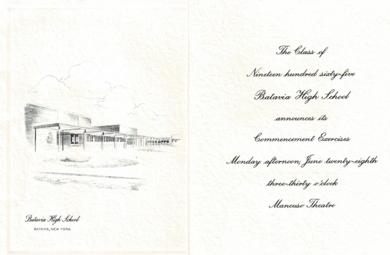 Batavia High School
BATAVIA, NEW YORK
The Class of
Nineteen hundred sixty-five
Batavia High School
announces its
Commencement Exercises
Monday afternoon, June twenty-eighth
three-thirty o'clock
Mancuso Theatre